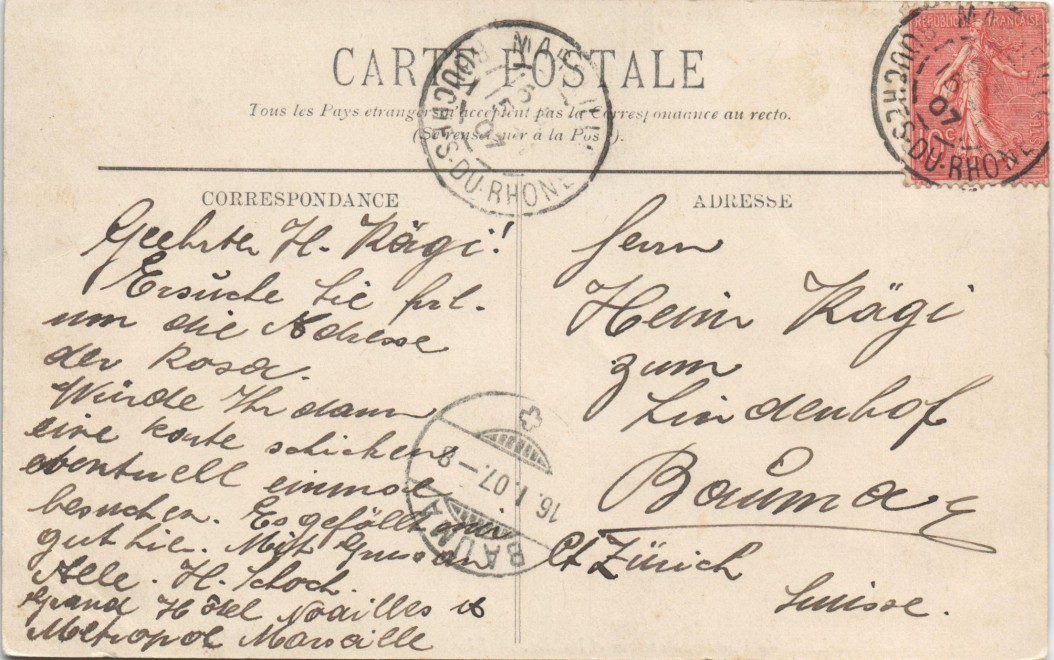 CARTE POSTALE
Tous les Pays etrangers n'acceptent pas la Correspondance au recto.
(Se renseigner à la Poste).
MARSEILLE
15
1
07
BOUCHES-DU-RHONE
REPUBLIQUE FRANÇAISE
10c
15
07
BOUCHES-DU-RHONE
CORRESPONDANCE
Geehrter H. Kägi!
Ersuche Sie frl.
um die Adresse
der Rosa.
Würde Ihr dann
eine Karte schicken
eventuell einmal
besuchen. Es gefällt mir
gut hier. Mit Gruss an
Alle. H. Schoch.
Grand Hôtel Noailles &
Metropol Marseille
ADRESSE
Herrn
Heinr Kägi
zum
Lindenhof
Bauma
Ct Zürich
Suisse.
BAUMA
16. I. 07. – 8